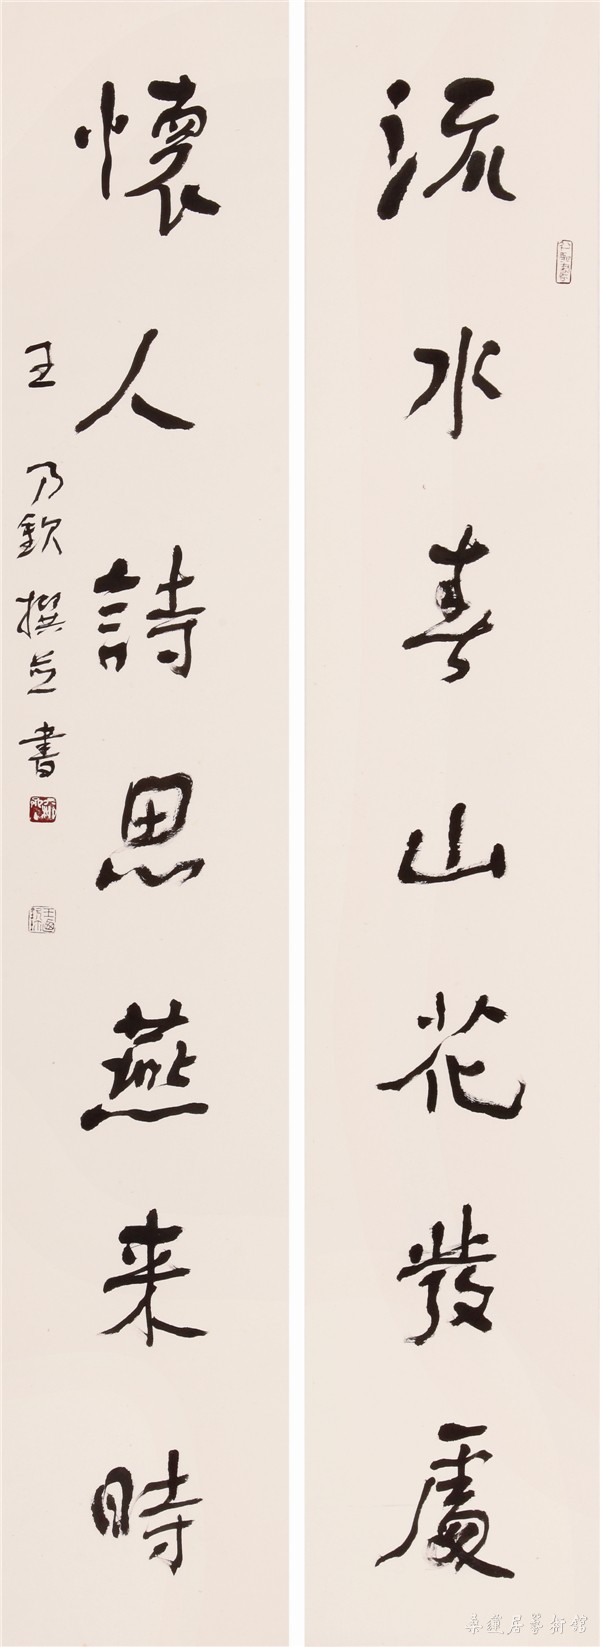 流水春山花發處
懷人詩思燕來時
王乃欽撰並書
桑蓮居藝術館